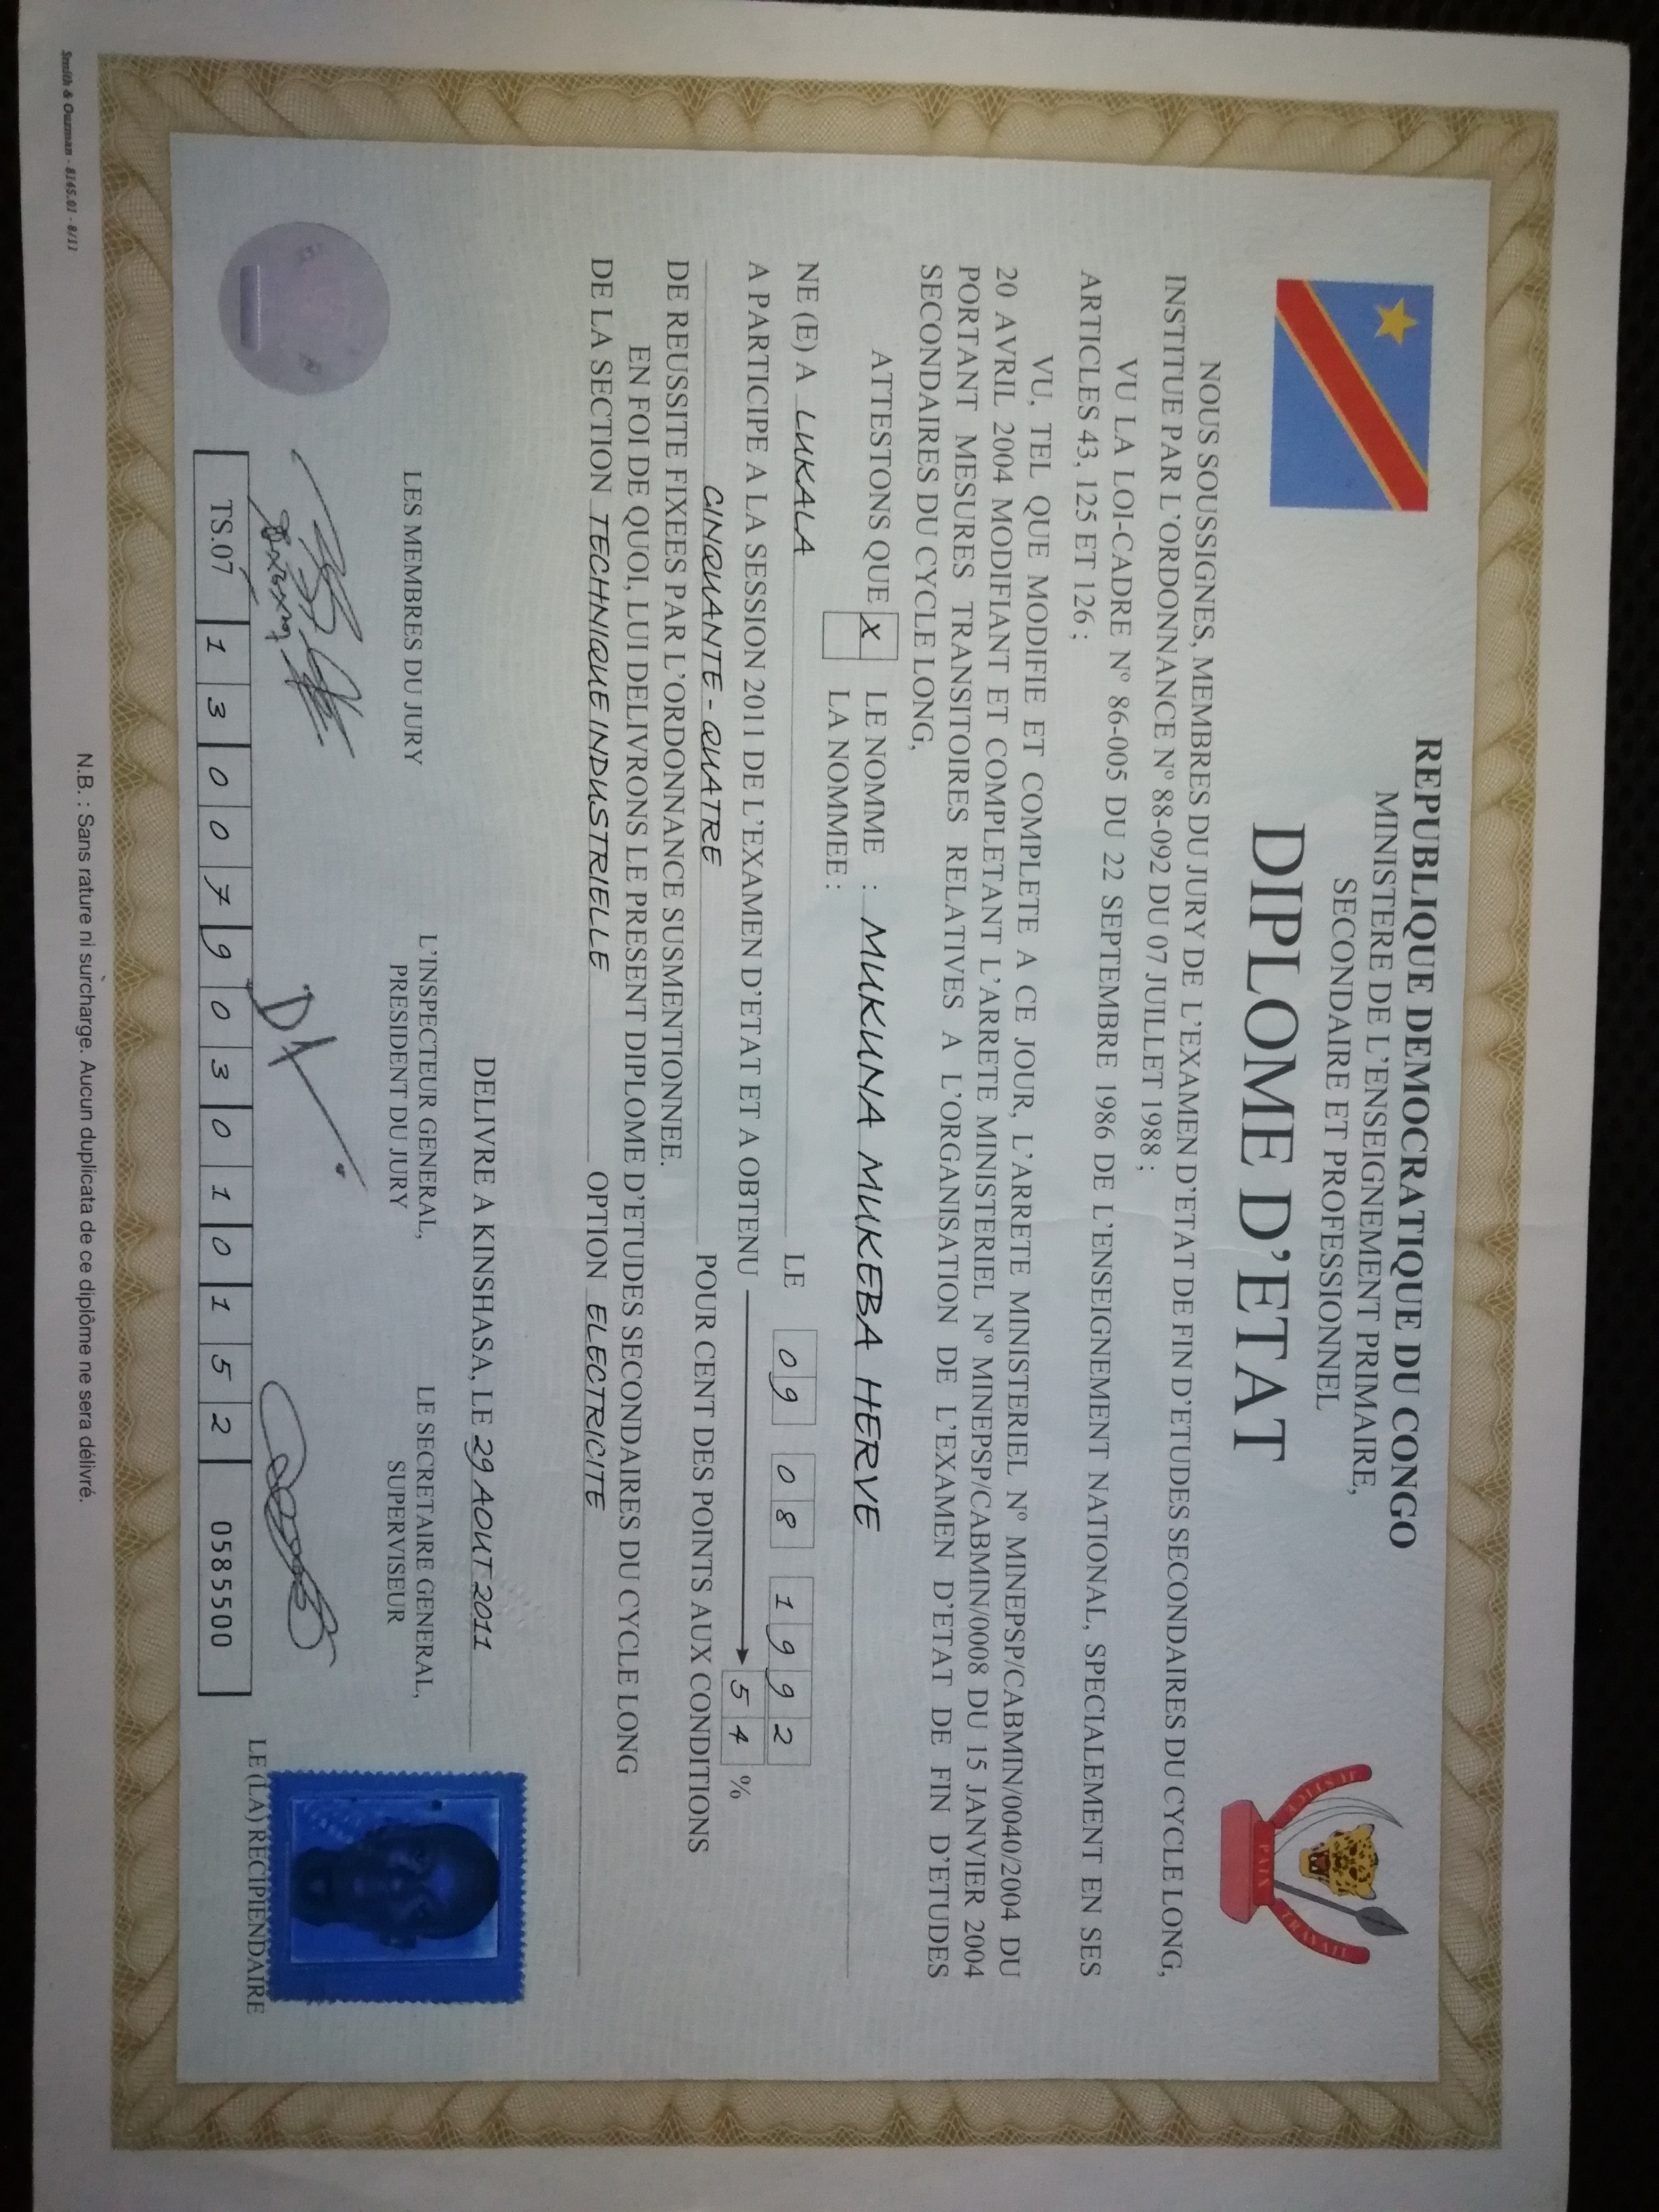 REPUBLIQUE DEMOCRATIQUE DU CONGO
MINISTERE DE L'ENSEIGNEMENT PRIMAIRE,
SECONDAIRE ET PROFESSIONNEL
DIPLOME D'ETAT
JUSTICE PAIX TRAVAIL
NOUS SOUSSIGNES, MEMBRES DU JURY DE L'EXAMEN D'ETAT DE FIN D'ETUDES SECONDAIRES DU CYCLE LONG,
INSTITUE PAR L'ORDONNANCE N° 88-092 DU 07 JUILLET 1988 ;
VU LA LOI-CADRE N° 86-005 DU 22 SEPTEMBRE 1986 DE L'ENSEIGNEMENT NATIONAL, SPECIALEMENT EN SES
ARTICLES 43, 125 ET 126 ;
VU, TEL QUE MODIFIE ET COMPLETE A CE JOUR, L'ARRETE MINISTERIEL N° MINEPSP/CABMIN/0040/2004 DU
20 AVRIL 2004 MODIFIANT ET COMPLETANT L'ARRETE MINISTERIEL N° MINEPSP/CABMIN/0008 DU 15 JANVIER 2004
PORTANT MESURES TRANSITOIRES RELATIVES A L'ORGANISATION DE L'EXAMEN D'ETAT DE FIN D'ETUDES
SECONDAIRES DU CYCLE LONG,
ATTESTONS QUE X LE NOMME : MUKUNA MUKEBA HERVE
LA NOMMEE :
NE (E) A LUKALA LE 09 08 1992
A PARTICIPE A LA SESSION 2011 DE L'EXAMEN D'ETAT ET A OBTENU 54 %
CINQUANTE - QUATRE POUR CENT DES POINTS AUX CONDITIONS
DE REUSSITE FIXEES PAR L'ORDONNANCE SUSMENTIONNEE.
EN FOI DE QUOI, LUI DELIVRONS LE PRESENT DIPLOME D'ETUDES SECONDAIRES DU CYCLE LONG
DE LA SECTION TECHNIQUE INDUSTRIELLE OPTION ELECTRICITE
DELIVRE A KINSHASA, LE 29 AOUT 2011
LES MEMBRES DU JURY
L'INSPECTEUR GENERAL,
PRESIDENT DU JURY
LE SECRETAIRE GENERAL,
SUPERVISEUR
LE (LA) RECIPIENDAIRE
TS.07 1 3 0 0 7 9 0 3 0 1 0 1 5 2 058500
N.B. : Sans rature ni surcharge. Aucun duplicata de ce diplôme ne sera délivré.
Smith & Ouzman - 8145.01 - 8/11